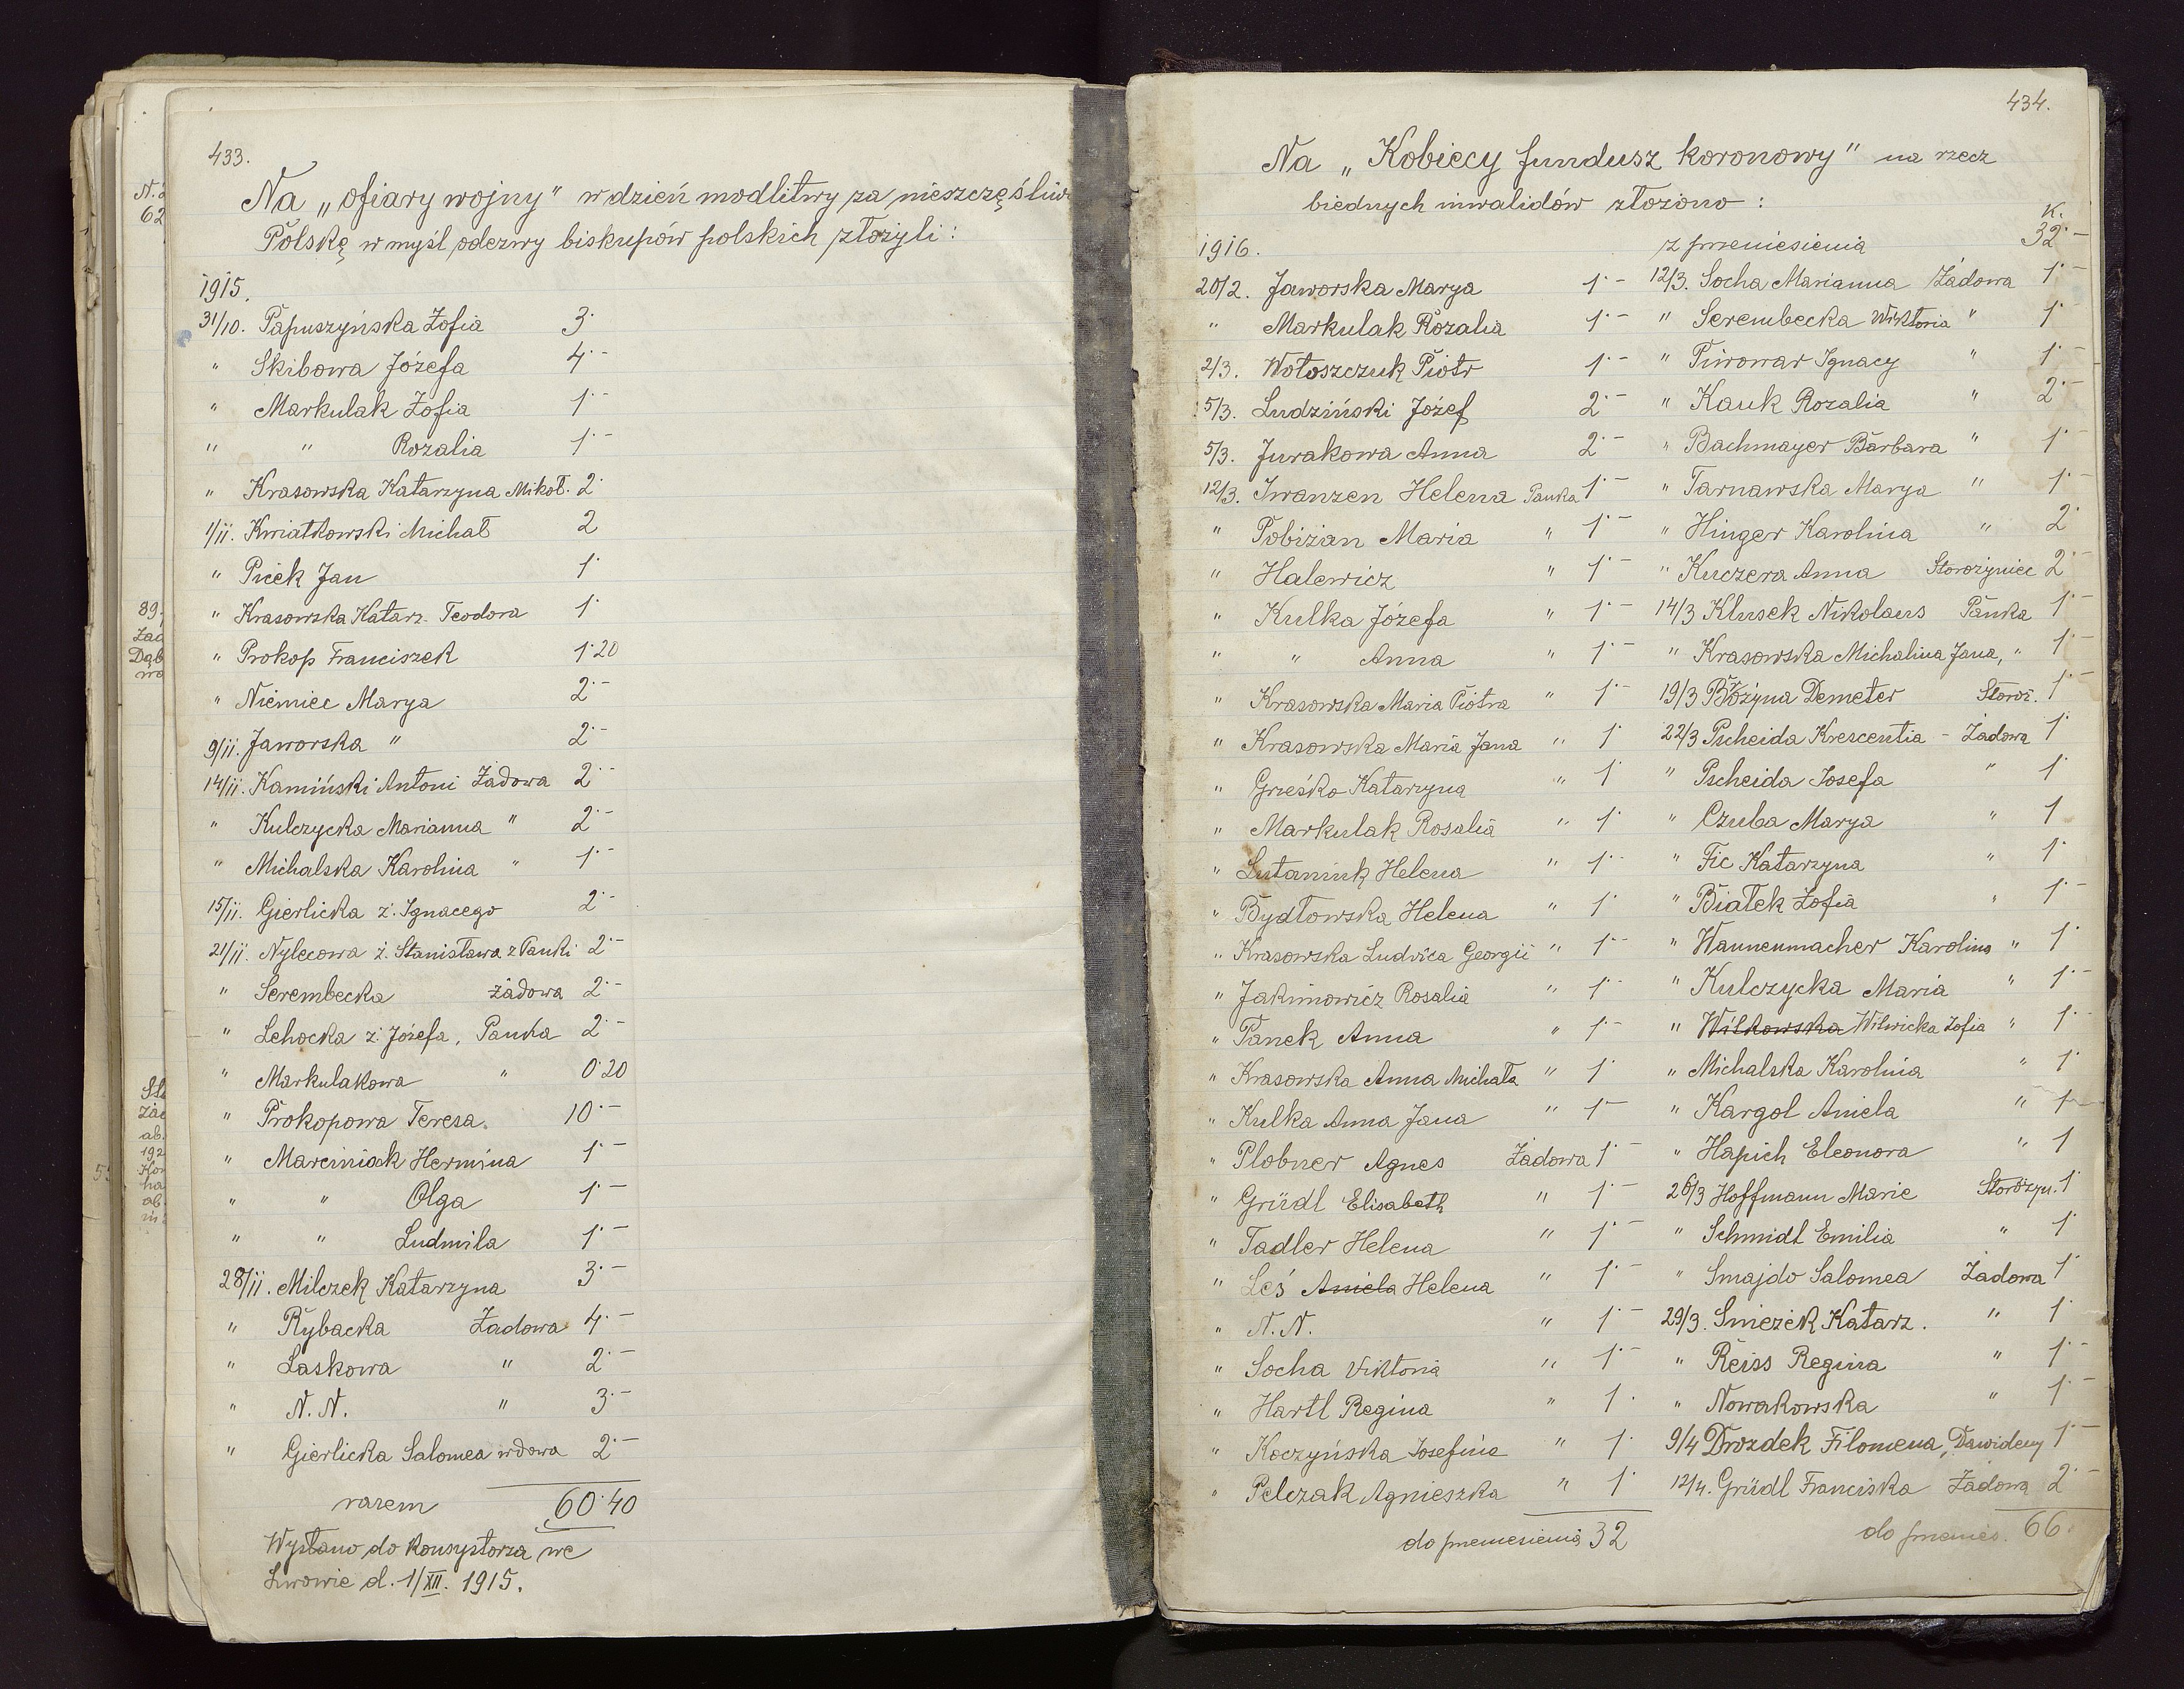 433.
Na „ofiary wojny" w dzień modlitwy za nieszczęśliw
Polskę w myśl odezwy biskupów polskich złożyli:
1915.
31/10. Papuszyńska Zofia 3·
" Skibowa Józefa 4·-
" Markulak Zofia 1·-
" " Rozalia 1·-
" Krasowska Katarzyna Mikoł. 2·
1/11. Kwiatkowski Michał 2
" Picek Jan 1·
" Krasowska Katarz. Teodora 1·
" Prokop Franciszek 1·20
" Niemiec Marya 2·-
9/11. Jaworska " 2·-
14/11. Kamiński Antoni Żadowa 2·-
" Kulczycka Marianna " 2·-
" Michalska Karolina " 1·-
15/11. Gierlicka ż. Ignacego 2·-
21/11. Nylecowa ż. Stanisława z Panki 2·-
" Serembecka Żadowa 2·-
" Lehocka ż. Józefa, Panka 2·-
" Markulakowa " 0·20
" Prokopowa Teresa. 10·-
" Marciniack Hermina 1·-
" " Olga 1·-
" " Ludmila 1·-
28/11. Milczek Katarzyna 3·-
" Rybacka Żadowa 4·-
" Laskowa " 2·-
" N.N. " 3·-
" Gierlicka Salomea wdowa 2·-
razem 60·40
Wysłano do Konsystorza we
Lwowie d. 1/XII. 1915.
434.
Na „Kobiecy fundusz koronowy" na rzecz
biednych inwalidów złożono:
1916.
20/2. Jaworska Marya 1·-
" Markulak Rozalia 1·-
2/3. Wołoszczuk Piotr 1·-
5/3. Ludziński Józef 2·-
5/3. Jurakowa Anna 2·-
12/3. Iwanzen Helena Panka 1·-
" Pobiżan Maria " 1·-
" Halewicz " 1·-
" Kulka Józefa " 1·-
" " Anna " 1·-
" Krasowska Maria Piotra " 1·-
" Krasowska Maria Jana " 1·
" Grześko Katarzyna " 1·
" Markulak Rosalia " 1·
" Lutaniuk Helena " 1·-
" Bydłowska Helena " 1·
" Krasowska Ludvica Georgii " 1·-
" Jakimowicz Rosalia " 1·-
" Panek Anna " 1·-
" Krasowska Anna Michała " 1·
" Kulka Anna Jana " 1·-
" Plobner Agnes Żadowa 1·-
" Gründl Elisabeth " 1·-
" Tadler Helena " 1·-
" Leś Aniela Helena " 1·-
" N.N. " 1·-
" Socha Viktoria " 1·-
" Hartl Regina " 1·
" Koczyńska Josefine " 1·
" Pelczak Agnieszka " 1·
do przeniesienia 32
K.
z przeniesienia 32·-
12/3. Socha Marianna Żadowa 1·-
" Serembecka Wiktoria " 1·
" Piwowar Ignacy " 1·-
" Kauk Rozalia " 2·-
" Bachmayer Barbara " 1·-
" Tarnawska Marya " 1·-
" Hinger Karolina " 2·
" Kuczera Anna Storożyniec 2·-
14/3 Klusek Nikolaus Panka 1·-
" Krasowska Michalina Jana, " 1·-
19/3 Brożyna Demeter Storoż. 1·-
22/3 Pscheida Krescentia - Żadowa 1·
" Pscheida Josefa " 1·
" Czuba Marya " 1
" Fic Katarzyna " 1·
" Białek Zofia " 1·-
" Wannenmacher Karolina " 1·
" Kulczycka Maria " 1·-
" Wilkowska Witwicka Zofia " 1·-
" Michalska Karolina " 1·
" Kargol Aniela " 1·-
" Hapich Eleonora " 1
26/3 Hoffmann Marie Storożyn. 1
" Schmidt Emilia " 1·
" Smajdo Salomea Żadowa 1·
29/3. Smieżek Katarz. " 1·
" Reiss Regina " 1·-
" Nowakowska " 1·-
9/4 Drozdek Filomena, Dawideny 1·-
12/4. Gründl Franciska Żadowa 2·-
do przenies. 66·